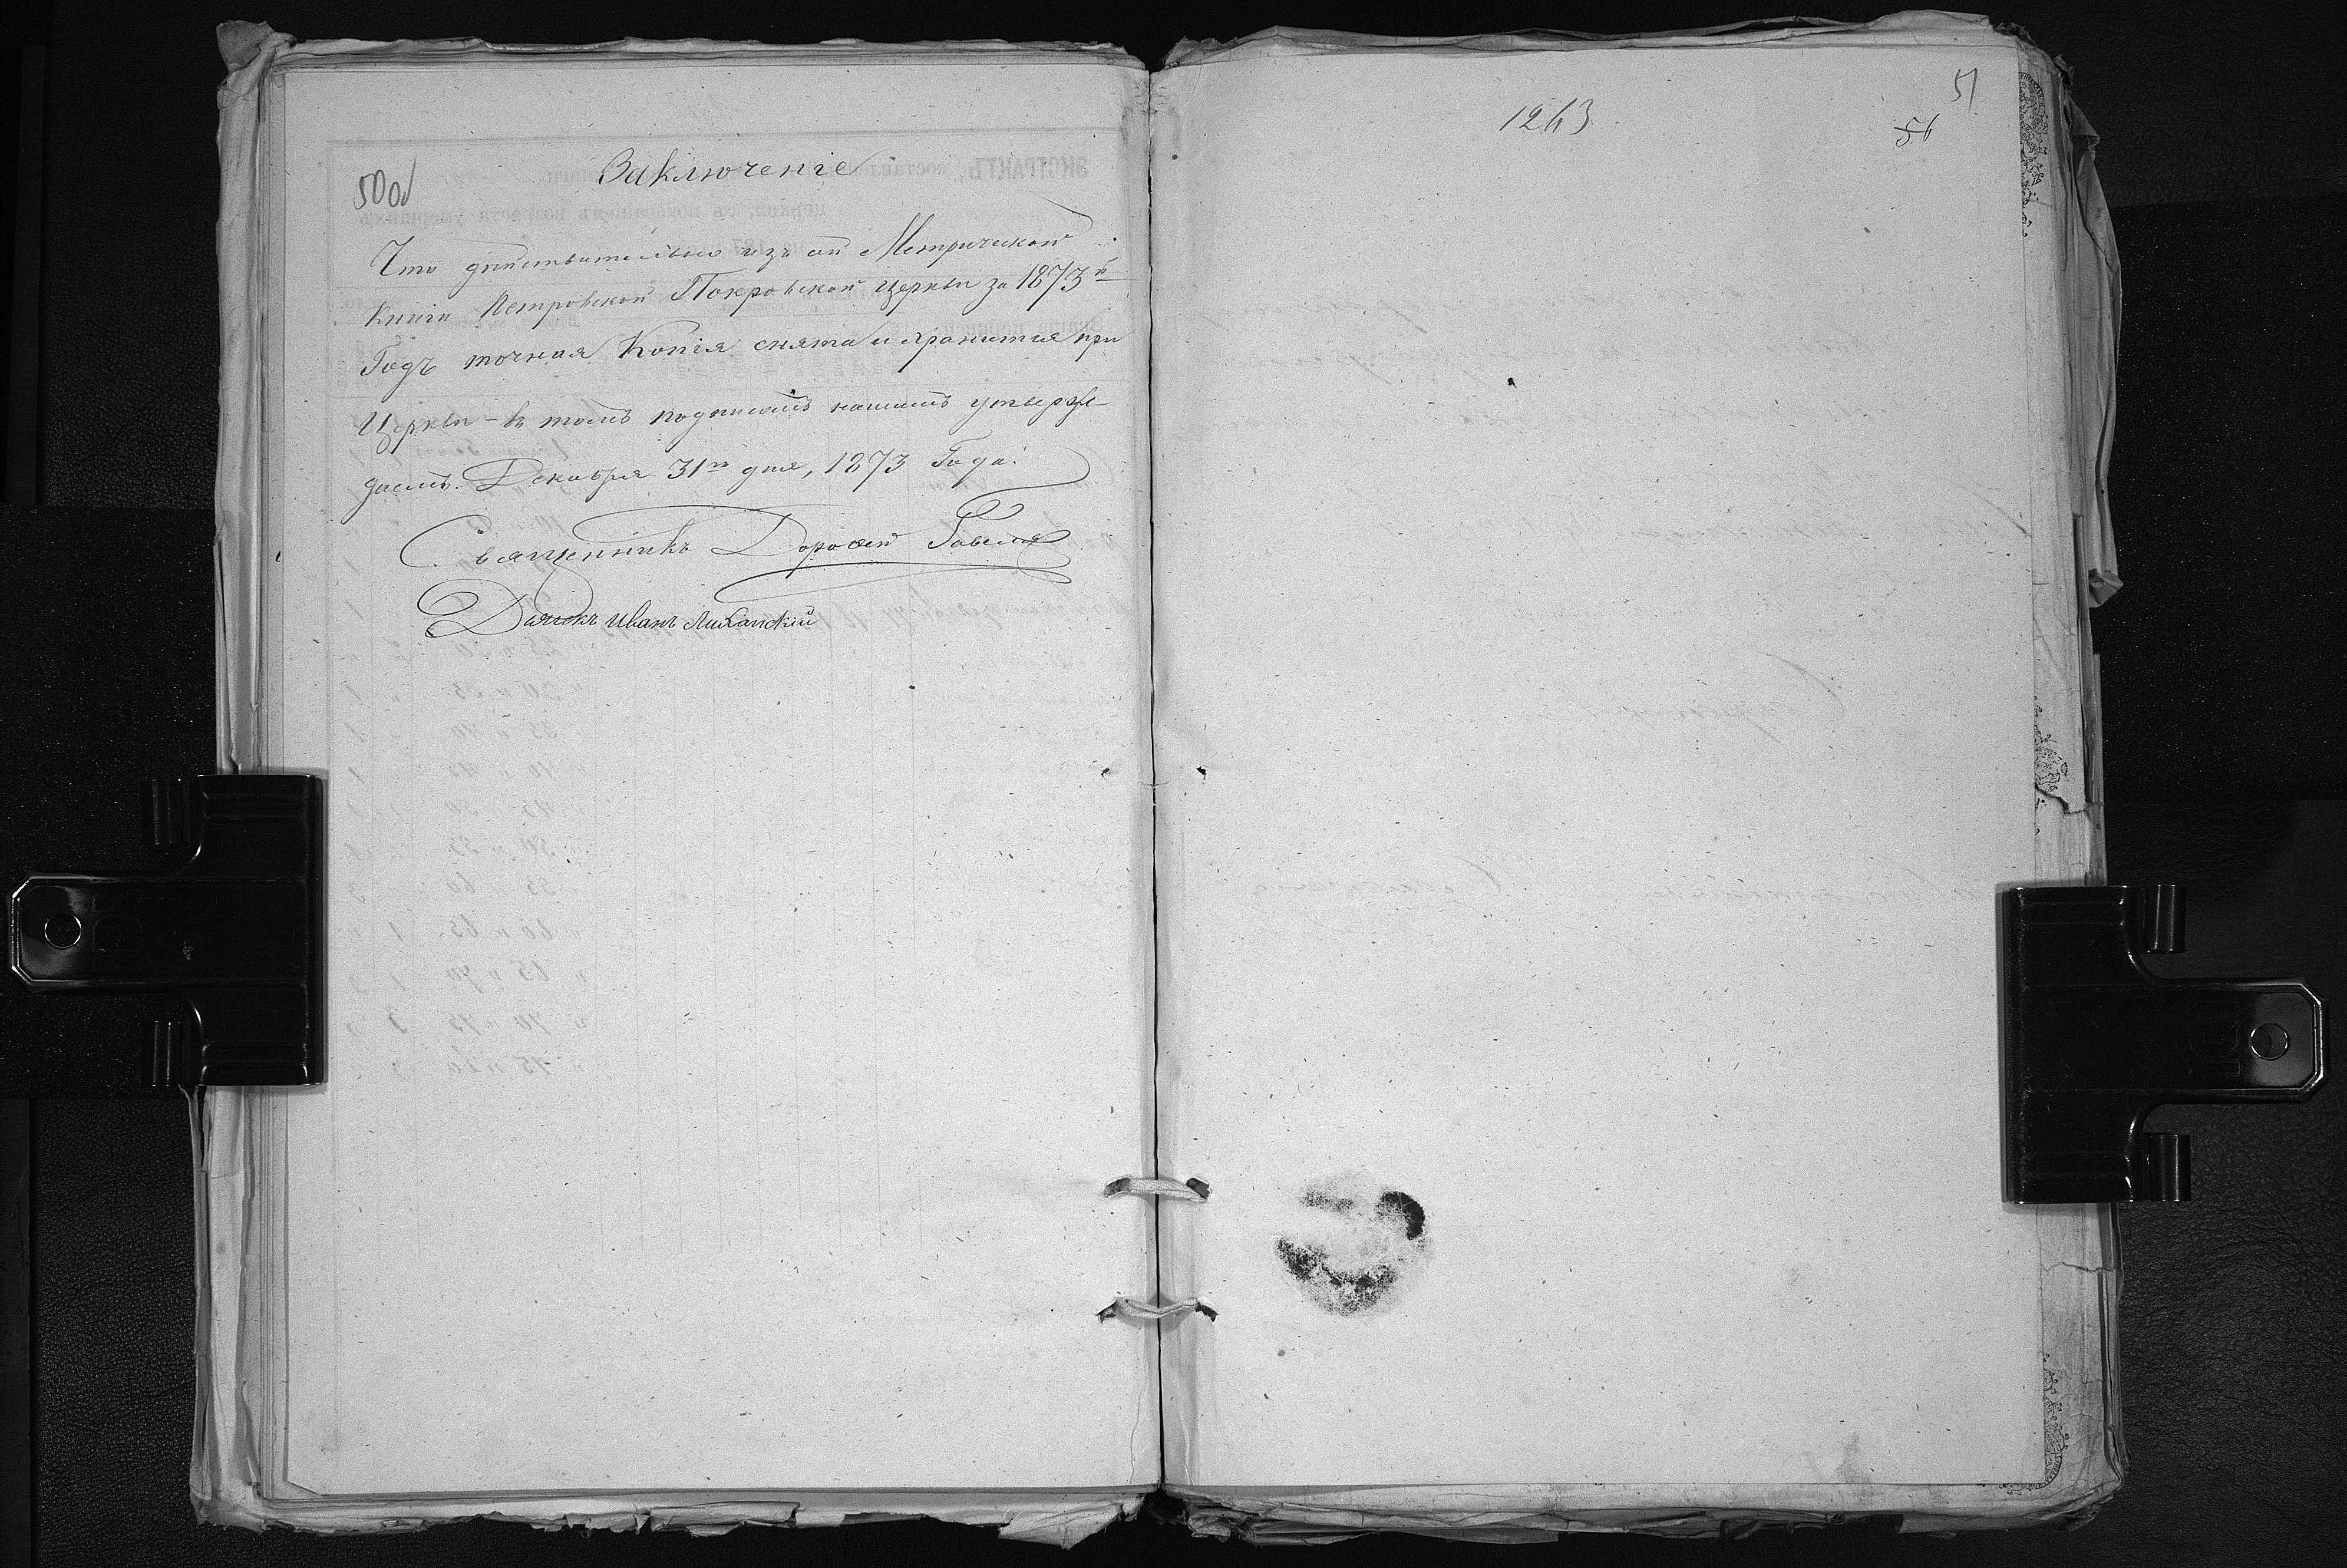 50об
Заключеніе
Что дѣйствительно изъ сей Метрической
книги Петровской Покровской Церкви за 1873й
Годъ точная Копія снята и хранится при
Церкви – въ томъ подписомъ нашимъ утверж-
даемъ. Декабря 31го дня, 1873 Года.
Священникъ Дорофей
Дьячокъ Иванъ
1243
51
56